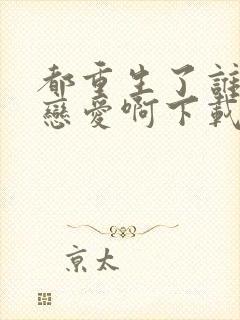 都重生了誰
戀愛啊下載
京太